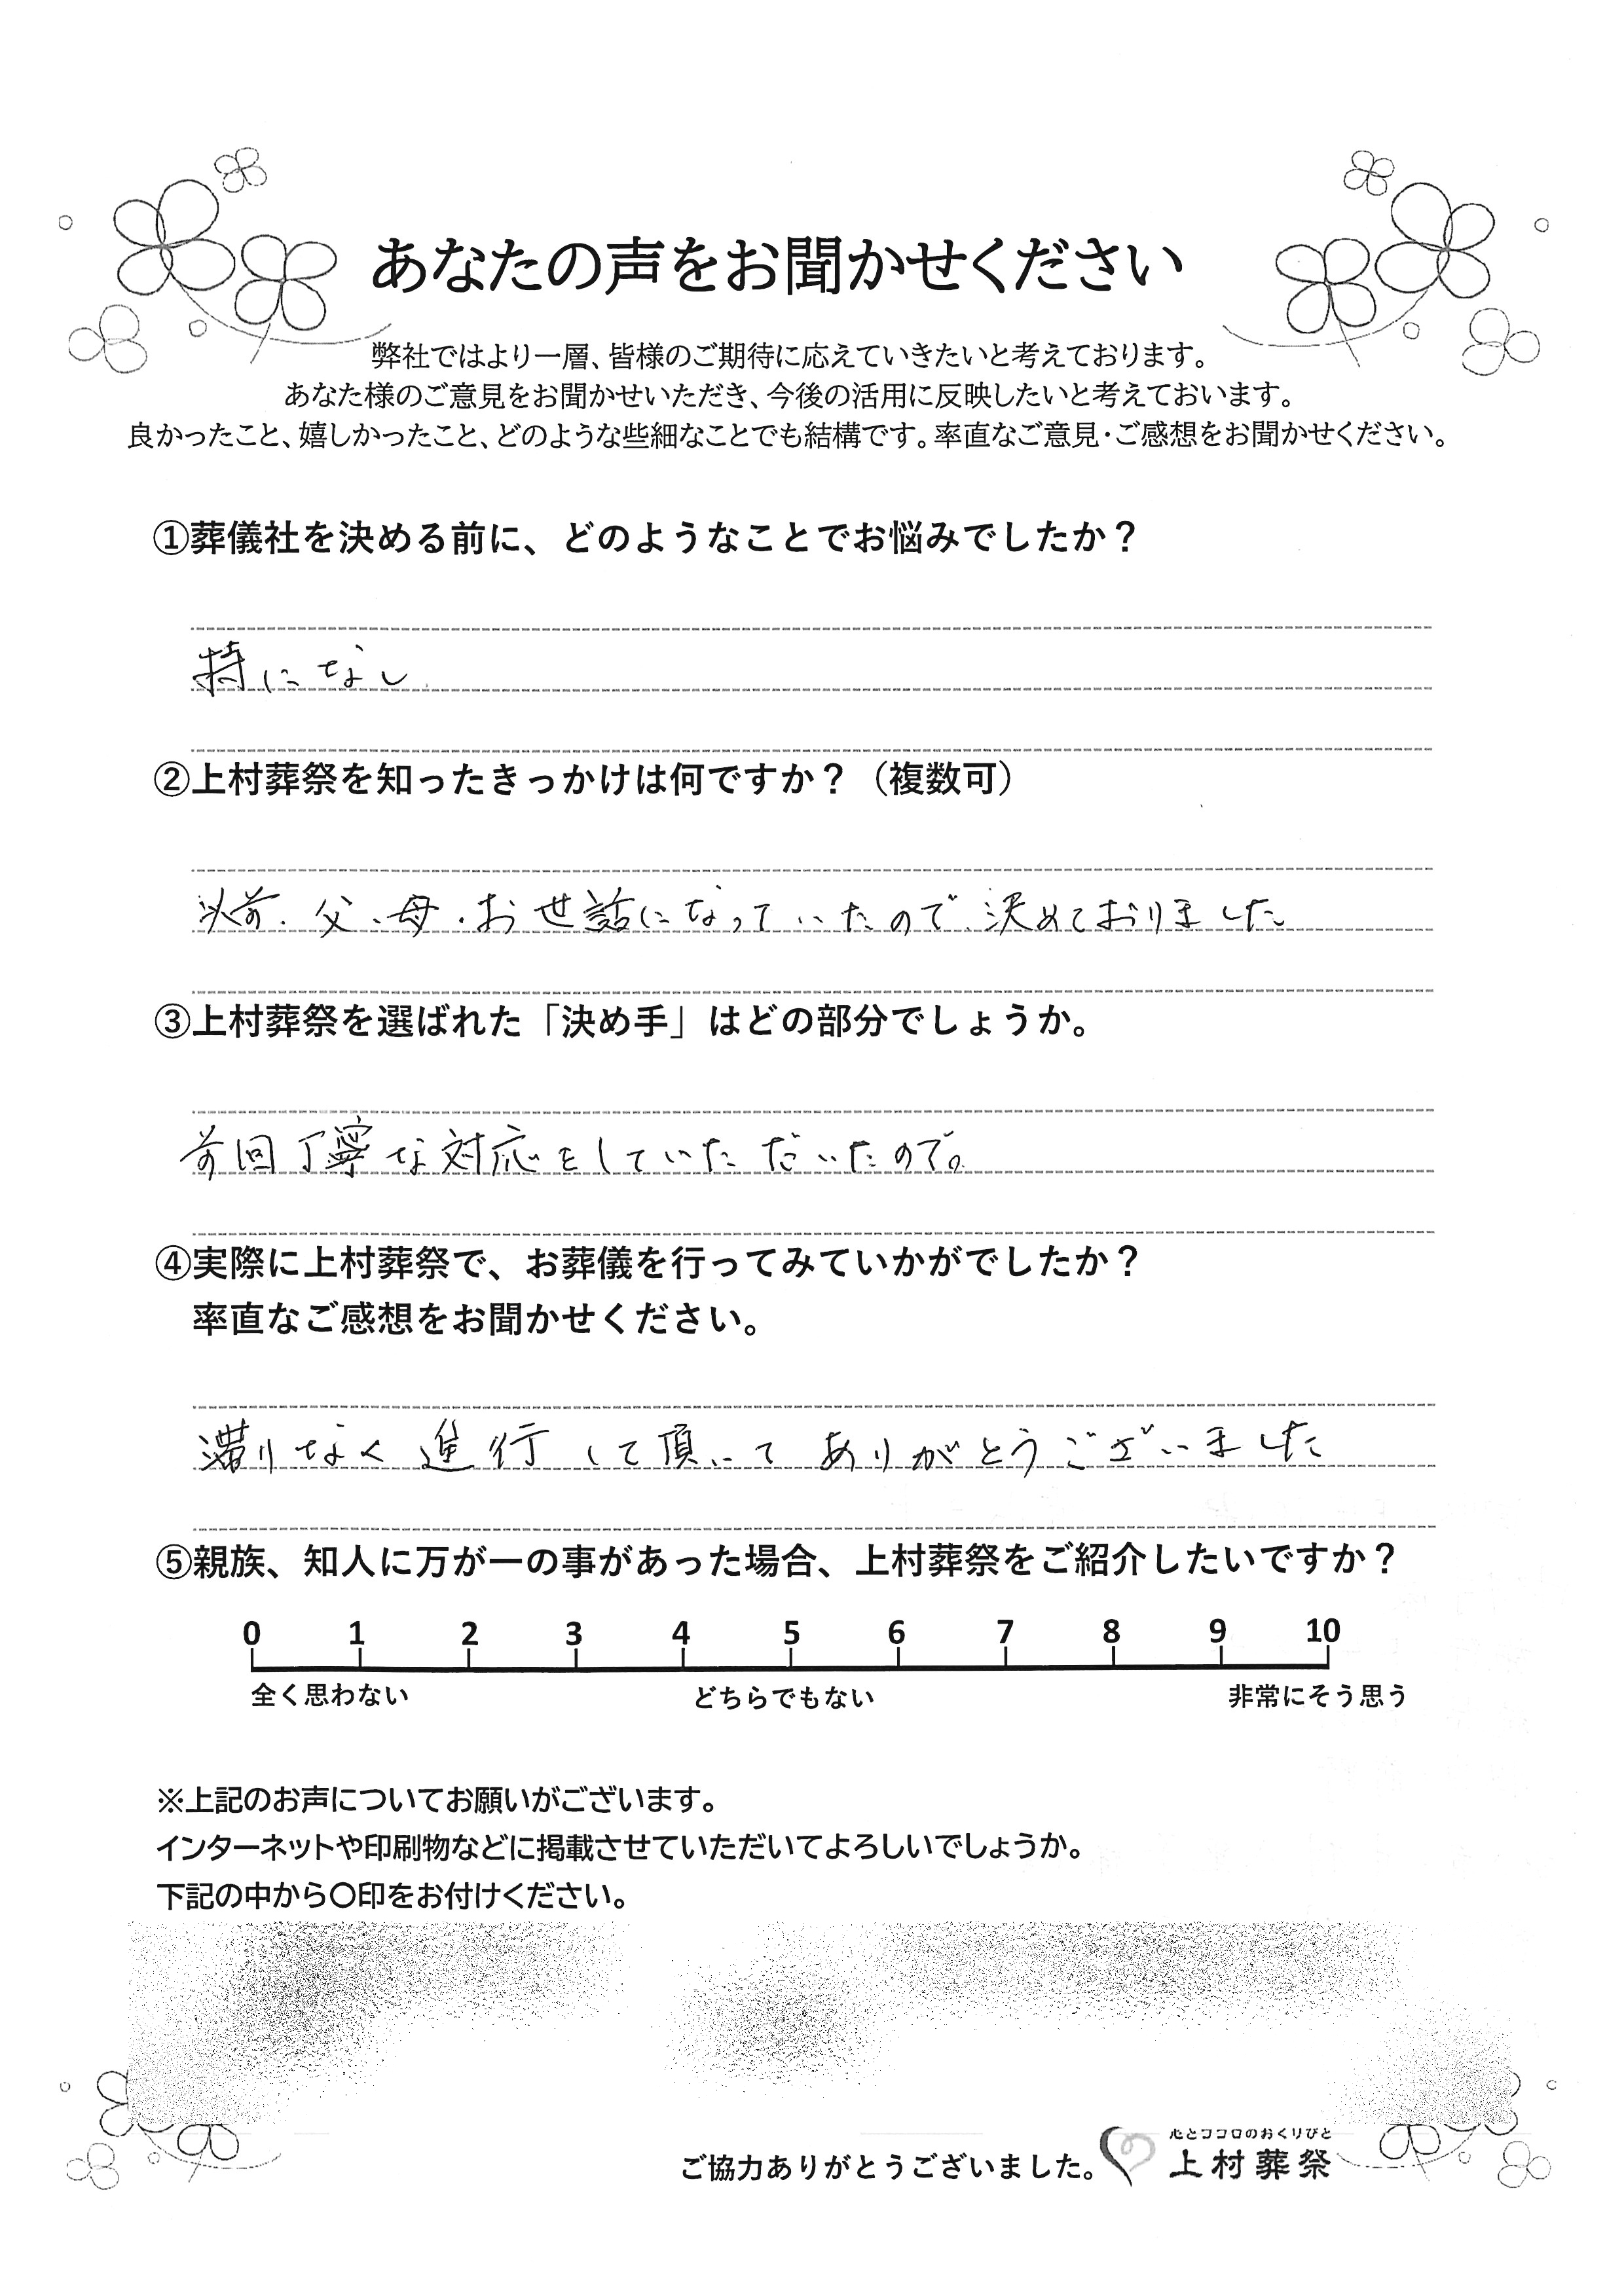 あなたの声をお聞かせください
弊社ではより一層、皆様のご期待に応えていきたいと考えております。
あなた様のご意見をお聞かせいただき、今後の活用に反映したいと考えておいます。
良かったこと、嬉しかったこと、どのような些細なことでも結構です。率直なご意見・ご感想をお聞かせください。
①葬儀社を決める前に、どのようなことでお悩みでしたか？
特になし
②上村葬祭を知ったきっかけは何ですか？（複数可）
以前.父.母.お世話になっていたので.決めておりました
③上村葬祭を選ばれた「決め手」はどの部分でしょうか。
前回丁寧な対応をしていただいたので。
④実際に上村葬祭で、お葬儀を行ってみていかがでしたか？
率直なご感想をお聞かせください。
滞りなく進行して頂いてありがとうございました
⑤親族、知人に万が一の事があった場合、上村葬祭をご紹介したいですか？
0 1 2 3 4 5 6 7 8 9 10
全く思わない どちらでもない 非常にそう思う
※上記のお声についてお願いがございます。
インターネットや印刷物などに掲載させていただいてよろしいでしょうか。
下記の中から〇印をお付けください。
心とココロのおくりびと
ご協力ありがとうございました。上村葬祭